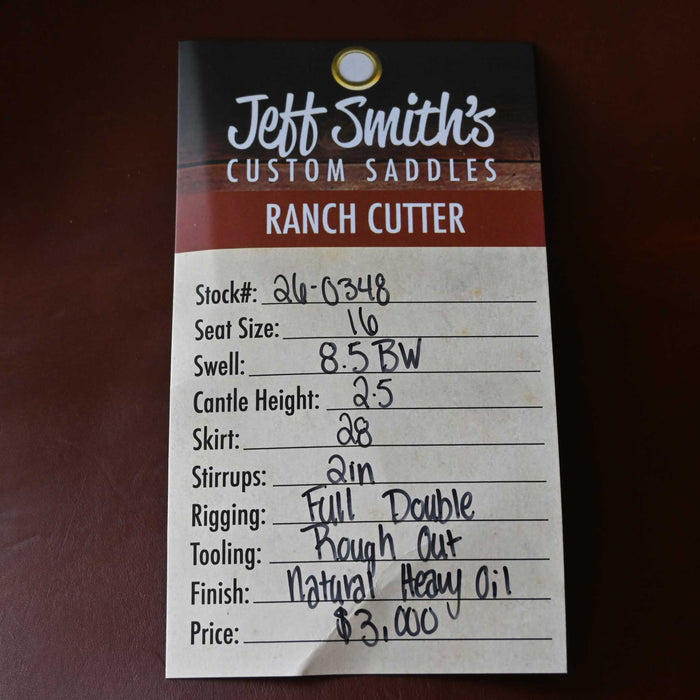 Jeff Smith's
CUSTOM SADDLES
RANCH CUTTER
Stock#: 26-0348
Seat Size: 16
Swell: 8.5 BW
Cantle Height: 2.5
Skirt: 28
Stirrups: 2in
Rigging: Full Double
Tooling: Rough Out
Finish: Natural Heavy Oil
Price: $3,000